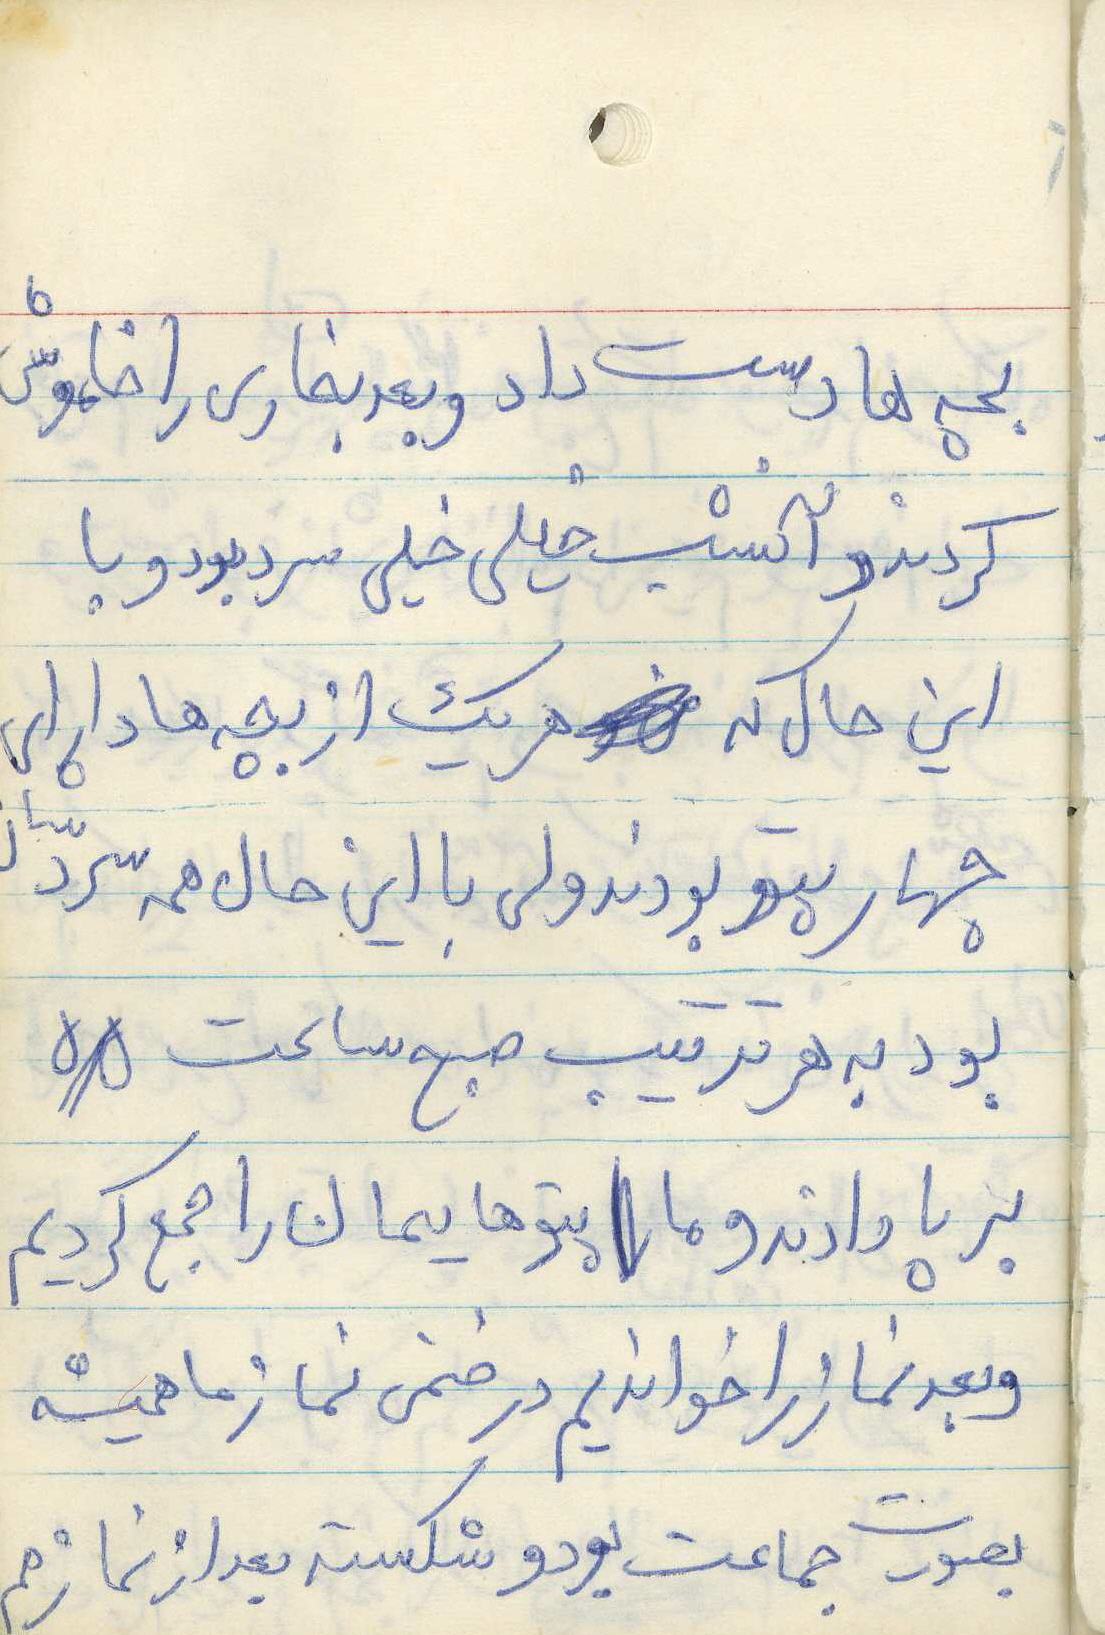 بچه ها دست داد و بعد بخاری را خاموش
کردند و آنشب خیلی خیلی سرد بود و با
این حال که هر یک از بچه ها دارای
چهار پتو بودند ولی با این حال همه سردشان
بود به هر ترتیب صبح ساعت ۵/۵
بر پا دادند و ما پتوهایمان را جمع کردیم
و بعد نماز را خواندیم در ضمن نماز ما همیشه
بصورت جماعت بود و شکسته بعد از نماز هم